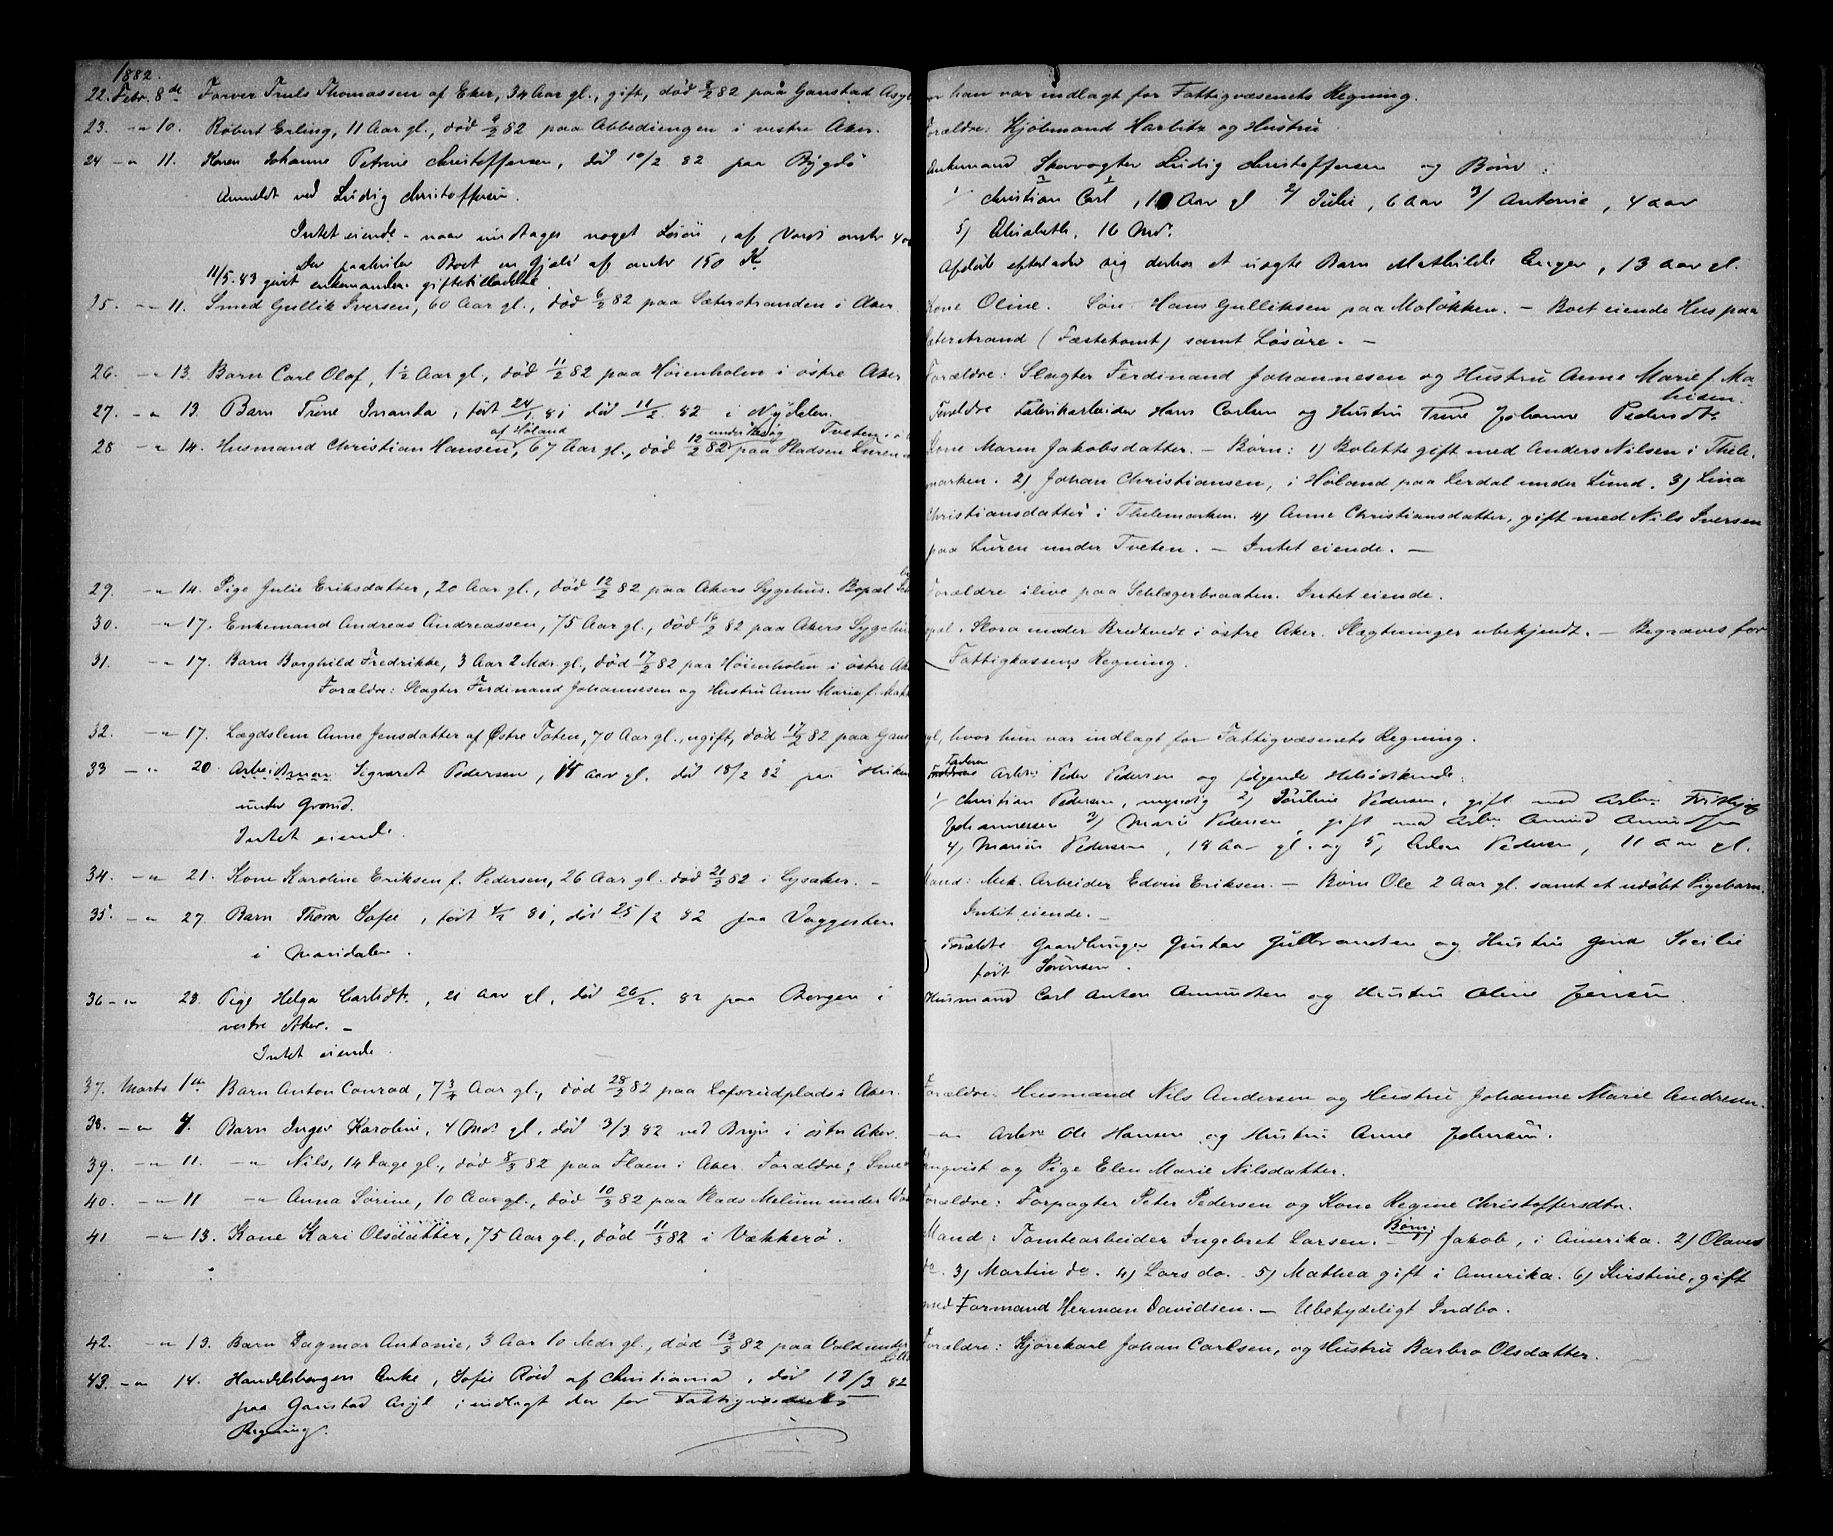 1882.
22. Febr. 8de Farver Truls Thomassen af Eker, 34 Aar gl., gift, død 8/2 82 paa Gaustad Asyl
23. -"- 10. Robert Erling, 11 Aar gl., død 9/2 82 paa Abbediengen i vestre Aker.
24 -"- 11. Karen Johanne Petrine Christoffersen, død 10/2 82 paa Bygdö
Anmeldt ved Ludvig Christoffersen.
Intet eiende - naar undtages noget Løsøre, af Værdi omtr 40
Der paahviler Boet en Gjæld af omtr 150 K.
11/5.83 givet enkemanden giftetilladelse.
25. -"- 11. Smed Gullik Iversen, 60 Aar gl., død 6/2 82 paa Sæterstranden i Aker.
26. -"- 13. Barn Carl Olaf, 1½ Aar gl., død 11/2 82 paa Høienholm i östre Aker
27. -"- 13. Barn Trine Inanda, født 24/1 81 død 11/2 82 i Nydalen.
af Høland
28 -"- 14. Husmand Christian Hansen, 67 Aar gl., død 12/2 82 paa Pladsen Luren under Tveten
29. -"- 14. Pige Julie Eriksdatter, 20 Aar gl., død 12/2 82 paa Akers Sygehus. Bopæl
30. -"- 17. Enkemand Andreas Andreassen, 75 Aar gl., død 16/2 82 paa Akers Sygehus
31. -"- 17. Barn Borghild Fredrikke, 3 Aar 2 Mdr. gl., død 17/2 82 paa Høienholm i østre Ake
Forældre: Slagter Ferdinand Johannesen og Hustru Anne Marie f. Mat
32. -"- 17. Lægdslem Anne Jensdatter af Østre Toten, 70 Aar gl., ugift, død 17/2 82 paa Gaus
33 -"- 20. Arbeidsman Sigvardt Pedersen, 14 Aar gl. død 18/2 82 paa
under Grorud.
Intet eiende.
34. -"- 21. Kone Karoline Eriksen f. Pedersen, 26 Aar gl. død 21/2 82 i Lysaker. -
35. -"- 27. Barn Thora Sofie, født 4/2 81, død 25/2 82 paa Vaggesten
i Maridalen.
36 -"- 28. Pige Helga Carlsdtr., 21 Aar gl, død 26/2 82 paa Borgen i
vestre Aker. -
Intet eiende.
37. Marts 1ste Barn Anton Conrad, 7¾ Aar gl., død 28/2 82 paa Lofsrudplads i Aker.
38. -"- 4. Barn Inger Karoline, 4 Md. gl, død 3/3 82 ved Bryn i østre Aker.
39. -"- 11. -"- Nils, 14 Dage gl., død 8/3 82 paa Flaen i Aker. Forældre: Smed
40. -"- 11 -"- Anna Sørine, 10 Aar gl., død 10/3 82 paa Plads Melum under
41 -"- 13. Kone Kari Olsdatter, 75 Aar gl., død 11/3 82 i Vækkerö.
42. -"- 13. Barn Dagmar Antonie, 3 Aar 10 Mdr gl., død 13/3 82 paa Vold under
43. -"- 14. Handelsborgers Enke, Sofie Röed af Christiania, død 13/3 82
paa Gaustad Asyl indlagt der for Fattigvæsenets
Regning.
or han var indlagt for Fattigvæsenets Regning.
Forældre: Kjøbmand Harbitz og Hustru
Enkemand Skovvogter Ludvig Christoffersen og Børn:
1/ Christian Carl, 10 Aar gl 2/ Julie, 6 Aar 3/ Antonie, 4 aar
5) Elisabeth, 16 Md.
Afdøde efterlader sig derhos et uægte Barn Mathilde Enger, 13 aar gl.
Kone Oline. Søn Hans Gulliksen paa Moløkken. - Boet eiende Hus paa
æterstrand (Fæstetomt) samt Løsøre. -
Forældre: Slagter Ferdinand Johannesen og Hustru Anne Marie f. Ma
thisen.
Forældre Fabrikarbeider Hans Carlsen og Hustru Trine Johanne Pedersdtr.
Kone Maren Jakobsdatter. - Børn: 1) Bolette gift med Anders Nilsen i Thele-
marken. 2) Johan Christiansen, i Høland paa Lerdal under Lund. 3) Lina
Christiansdatter i Thelemarken. 4) Anne Christiansdatter, gift med Nils Iversen
paa Luren under Tveten. - Intet eiende. -
Forældre ilive paa Schlægerbraaten. Intet eiende.
opæl. Skora under Bredtvedt i östre Aker. Slægtninger ubekjendt. - Begraves for
Fattigkassens Regning.
yl, hvor hun var indlagt for Fattigvæsenets Regning.
Faderen Arbr. Peder Pedersen og følgende Helsødskende:
1/ Christian Pedersen, myndig 2) Pauline Pedersen, gift med Arbr. Fritjof
Johannesen 3) Marie Pedersen, gift med Arbr. Amund Amundsen
4) Marius Pedersen, 18 Aar gl. og 5) Adam Pedersen, 11 Aar gl.
Mand: Mek. Arbeider Edvin Eriksen. - Børn Ole 2 Aar gl. samt et udøbt Pigebarn.
Intet eiende. -
Forældre Gaardbruger Gustav Gulbrandsen og Hustru Gina Cecilie
født Sørensen.
Husmand Carl Anton Amundsen og Hustru Oline Jensen.
Forældre: Husmand Nils Andersen og Hustru Johanne Marie Andresen.
-"- Arbr Ole Hansen og Hustru Anne Johnsen.
nqvist og Pige Elen Marie Nilsdatter.
Forældre: Forpagter Peter Pedersen og Kone Regine Christoffersdtr.
Mand: Tomtearbeider Ingebret Larsen. - Børn: Jakob, i Amerika. 2) Olaves
do. 3) Martin do. 4) Lars do. 5) Mathea gift i Amerika. 6) Kirstine, gift
med Formand Herman Davidsen. - Ubetydeligt Indbo.
Forældre: Kjørekarl Johan Carlsen, og Hustru Barbro Olsdatter.